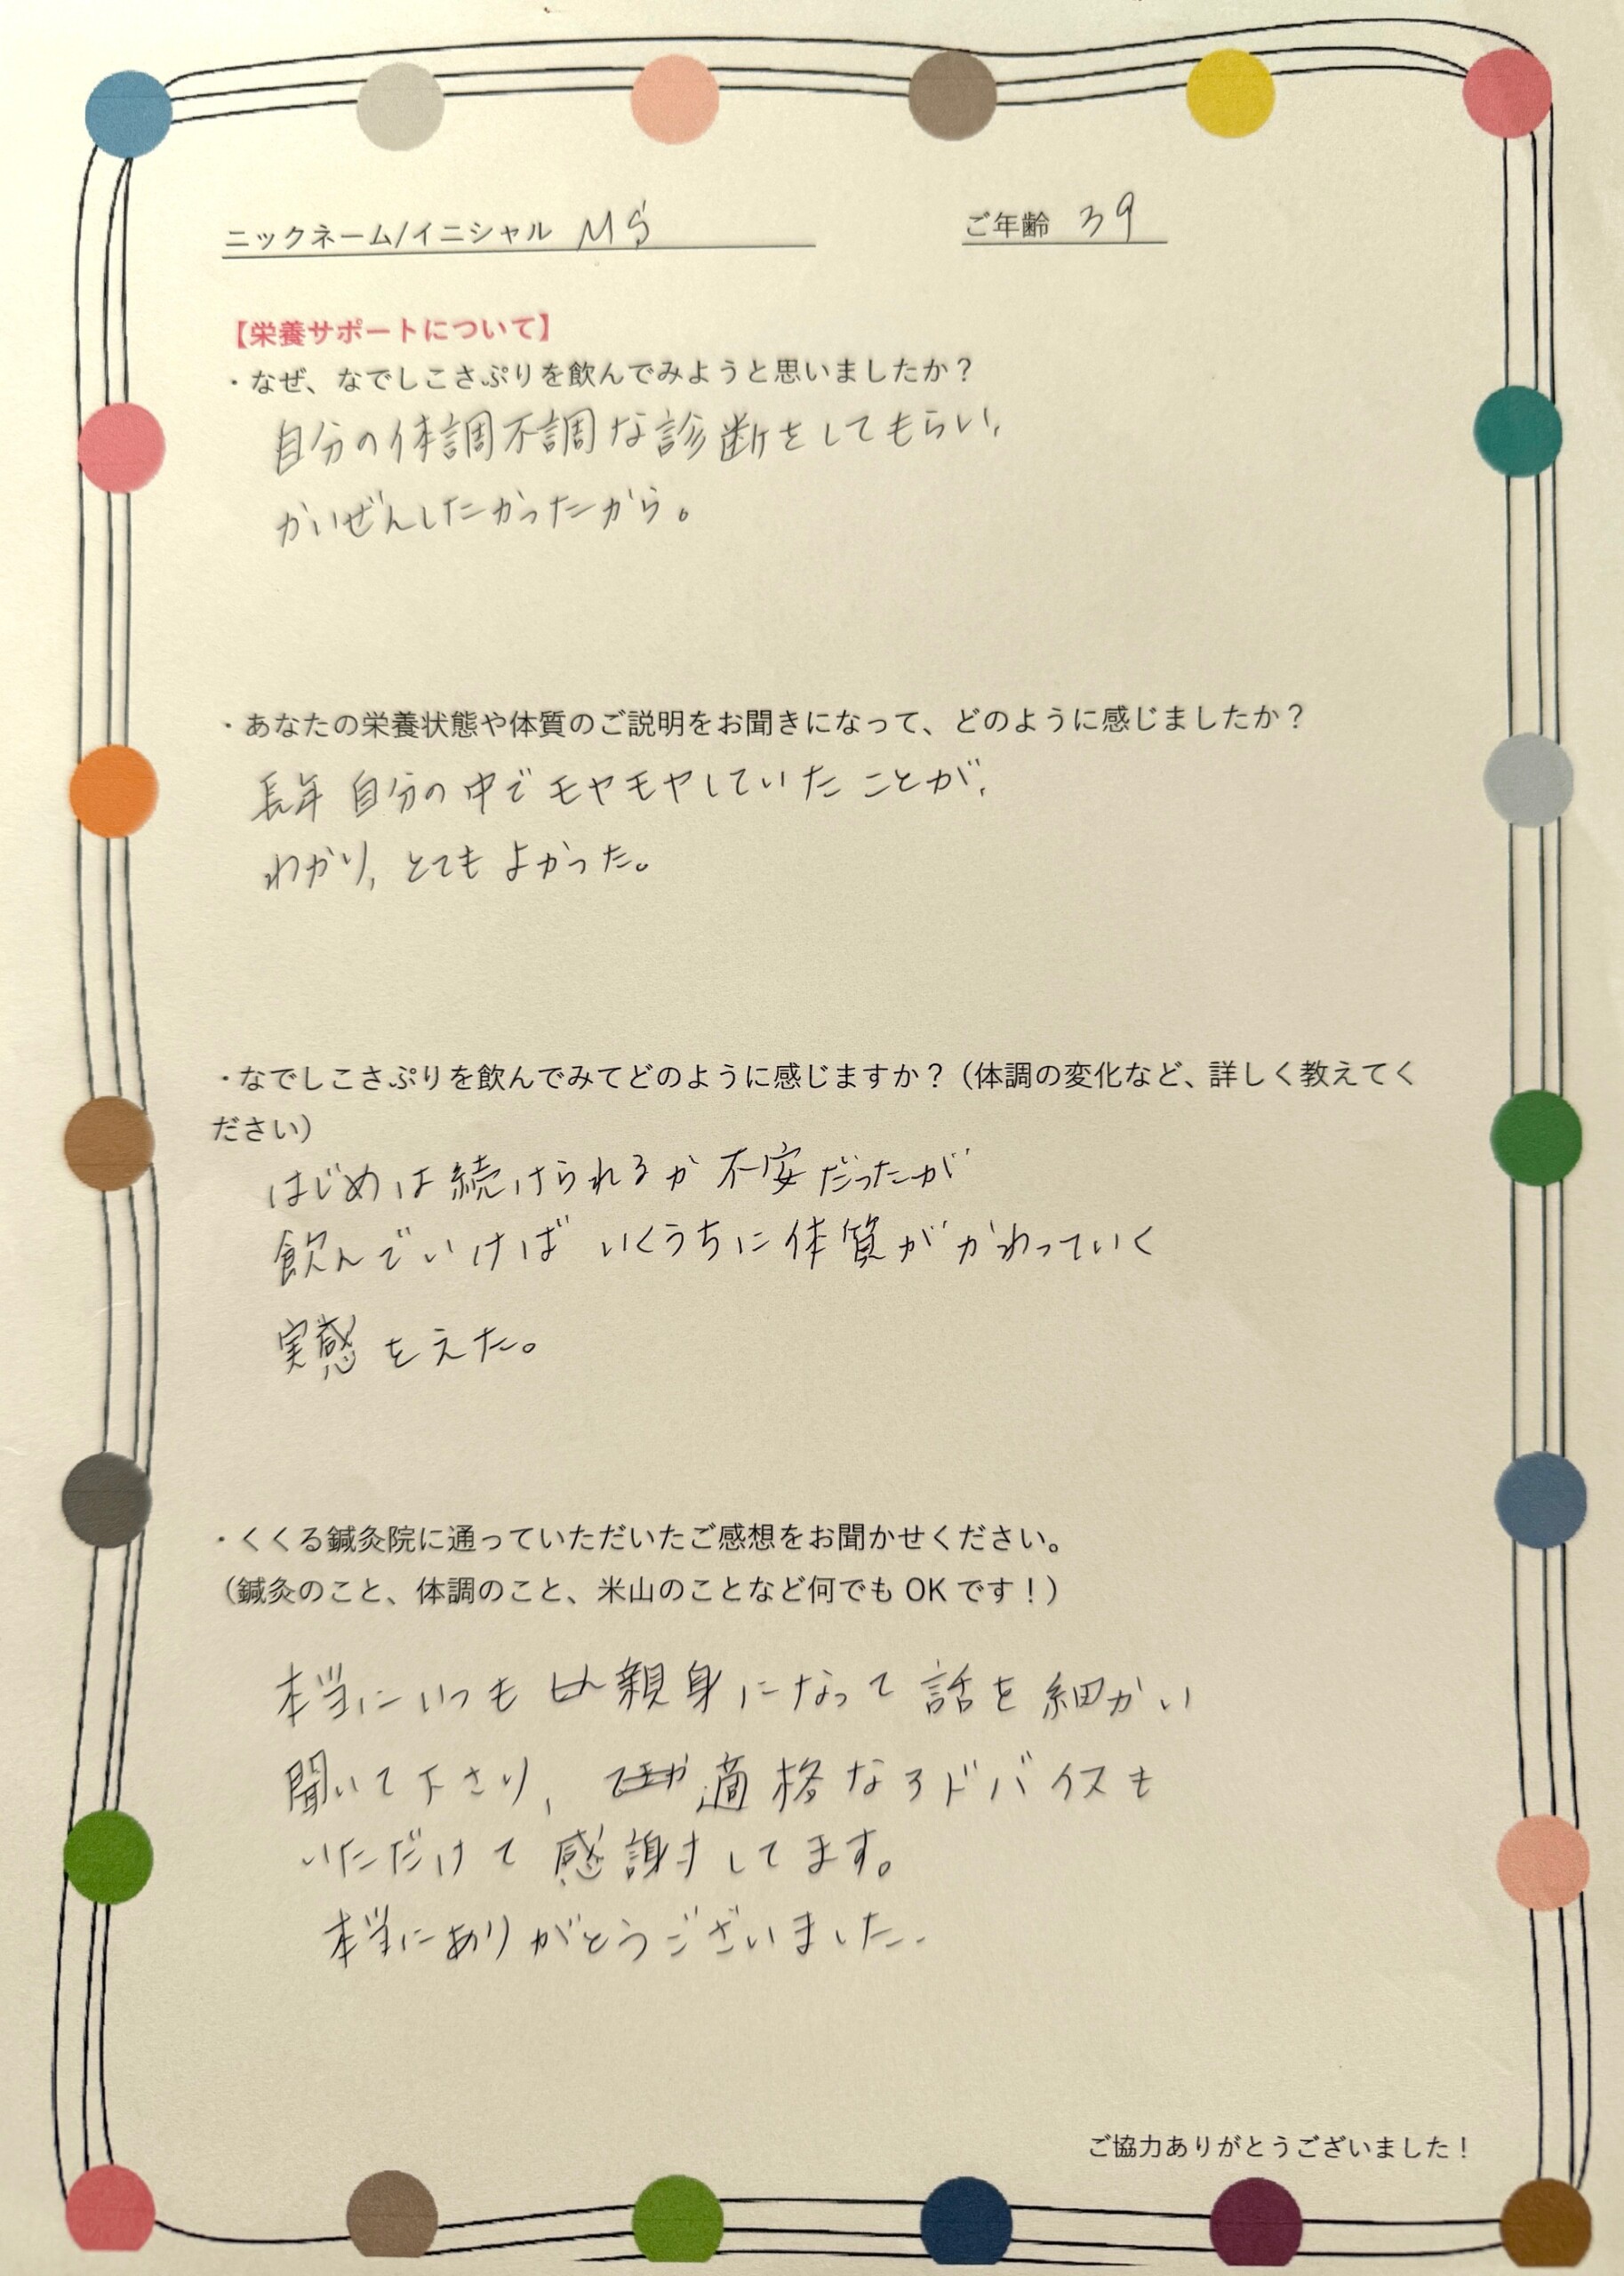 ニックネーム/イニシャル MS ご年齢 39
【栄養サポートについて】
・なぜ、なでしこさぷりを飲んでみようと思いましたか？
自分の体調不調な診断をしてもらい、
かいぜんしたかったから。
・あなたの栄養状態や体質のご説明をお聞きになって、どのように感じましたか？
長年自分の中でモヤモヤしていたことが、
わかり、とてもよかった。
・なでしこさぷりを飲んでみてどのように感じますか？（体調の変化など、詳しく教えてく
ださい）
はじめは続けられるか不安だったが
飲んでいけばいくうちに体質がかわっていく
実感をえた。
・くくる鍼灸院に通っていただいたご感想をお聞かせください。
（鍼灸のこと、体調のこと、米山のことなど何でも OK です！）
本当にいつも親身になって話を細かい
聞いて下さり、適格なアドバイスも
いただけて感謝してます。
本当にありがとうございました.
ご協力ありがとうございました！